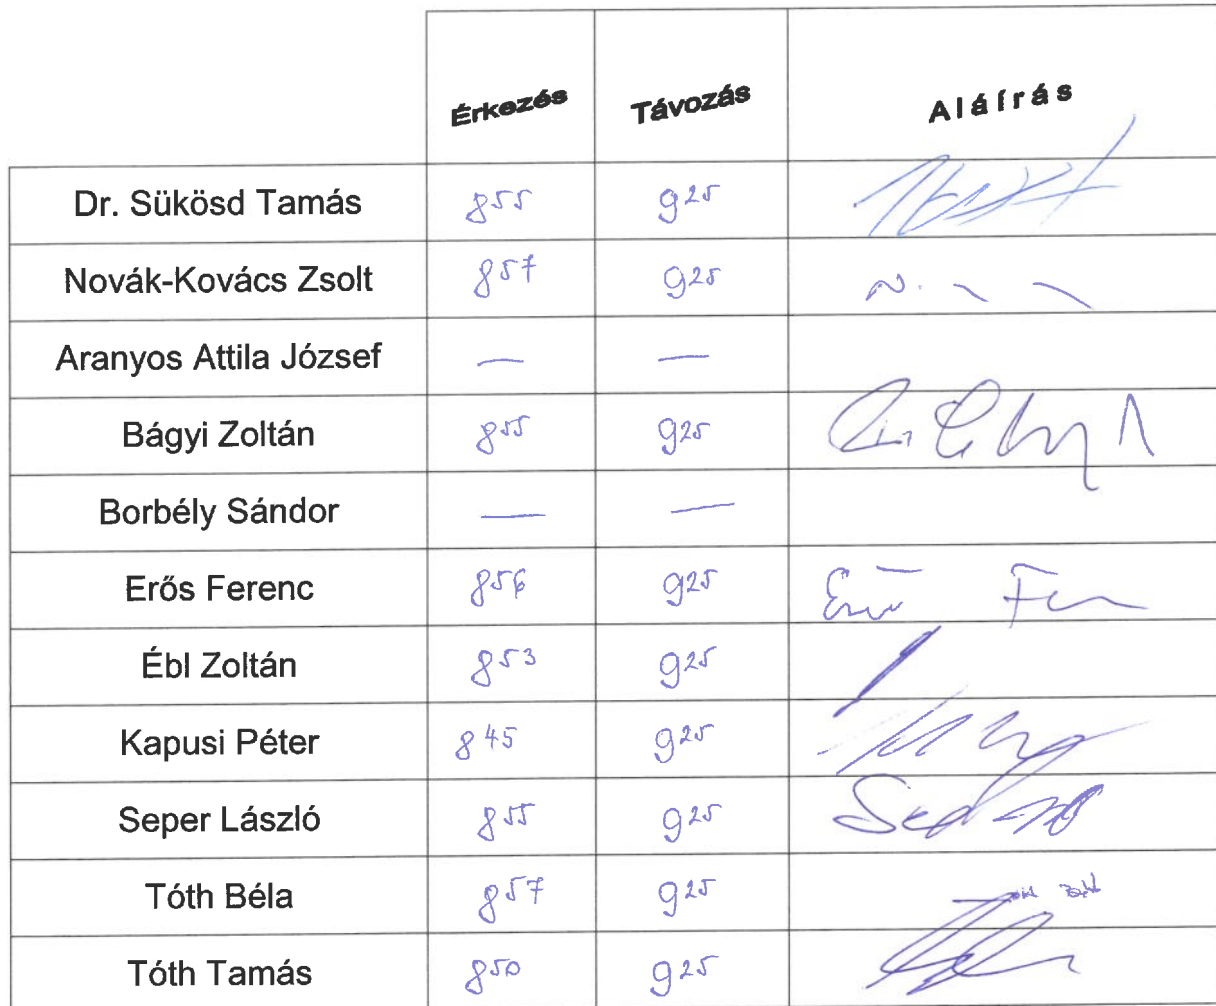 Érkezés Távozás Aláírás
Dr. Sükösd Tamás 855 925
Novák-Kovács Zsolt 857 925
Aranyos Attila József — —
Bágyi Zoltán 855 925
Borbély Sándor — —
Erős Ferenc 856 925
Ébl Zoltán 853 925
Kapusi Péter 845 925
Seper László 855 925
Tóth Béla 857 925
Tóth Tamás 850 925